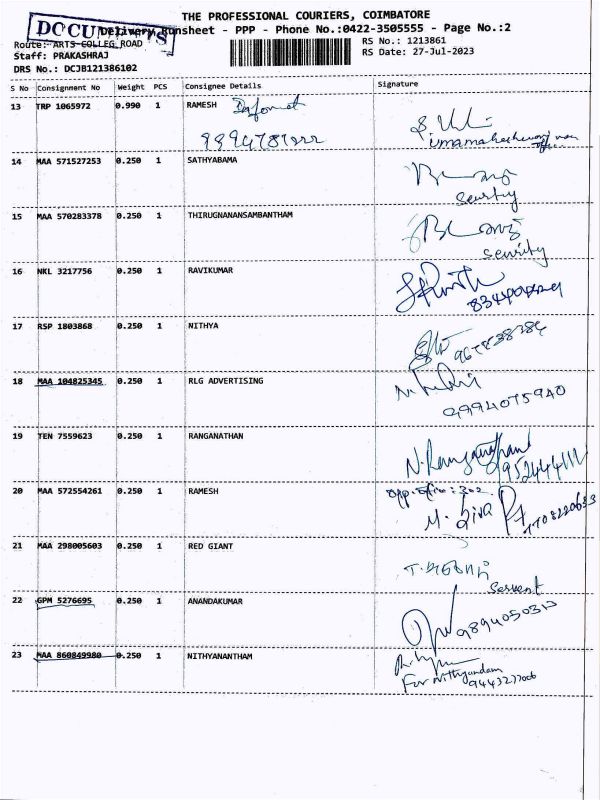 THE PROFESSIONAL COURIERS, COIMBATORE
DOCUMENTS
Delivery Runsheet - PPP - Phone No.:0422-3505555 - Page No.:2
Route: ARTS COLLEG ROAD
RS No.: 1213861
Staff: PRAKASHRAJ
RS Date: 27-Jul-2023
DRS No.: DCJB121386102
S No Consignment No Weight PCS Consignee Details Signature
13 TRP 1065972 0.990 1 RAMESH
14 MAA 571527253 0.250 1 SATHYABAMA
security
15 MAA 570283378 0.250 1 THIRUGNANANSAMBANTHAM
security
16 NKL 3217756 0.250 1 RAVIKUMAR
17 RSP 1803868 0.250 1 NITHYA
18 MAA 104825345 0.250 1 RLG ADVERTISING
9994075940
19 TEN 7559623 0.250 1 RANGANATHAN
N. Ranganathan
20 MAA 572554261 0.250 1 RAMESH
M. Siva
21 MAA 298005603 0.250 1 RED GIANT
22 GPM 5276695 0.250 1 ANANDAKUMAR
Servent
23 MAA 860849980 0.250 1 NITHYANANTHAM
For Nithyandam